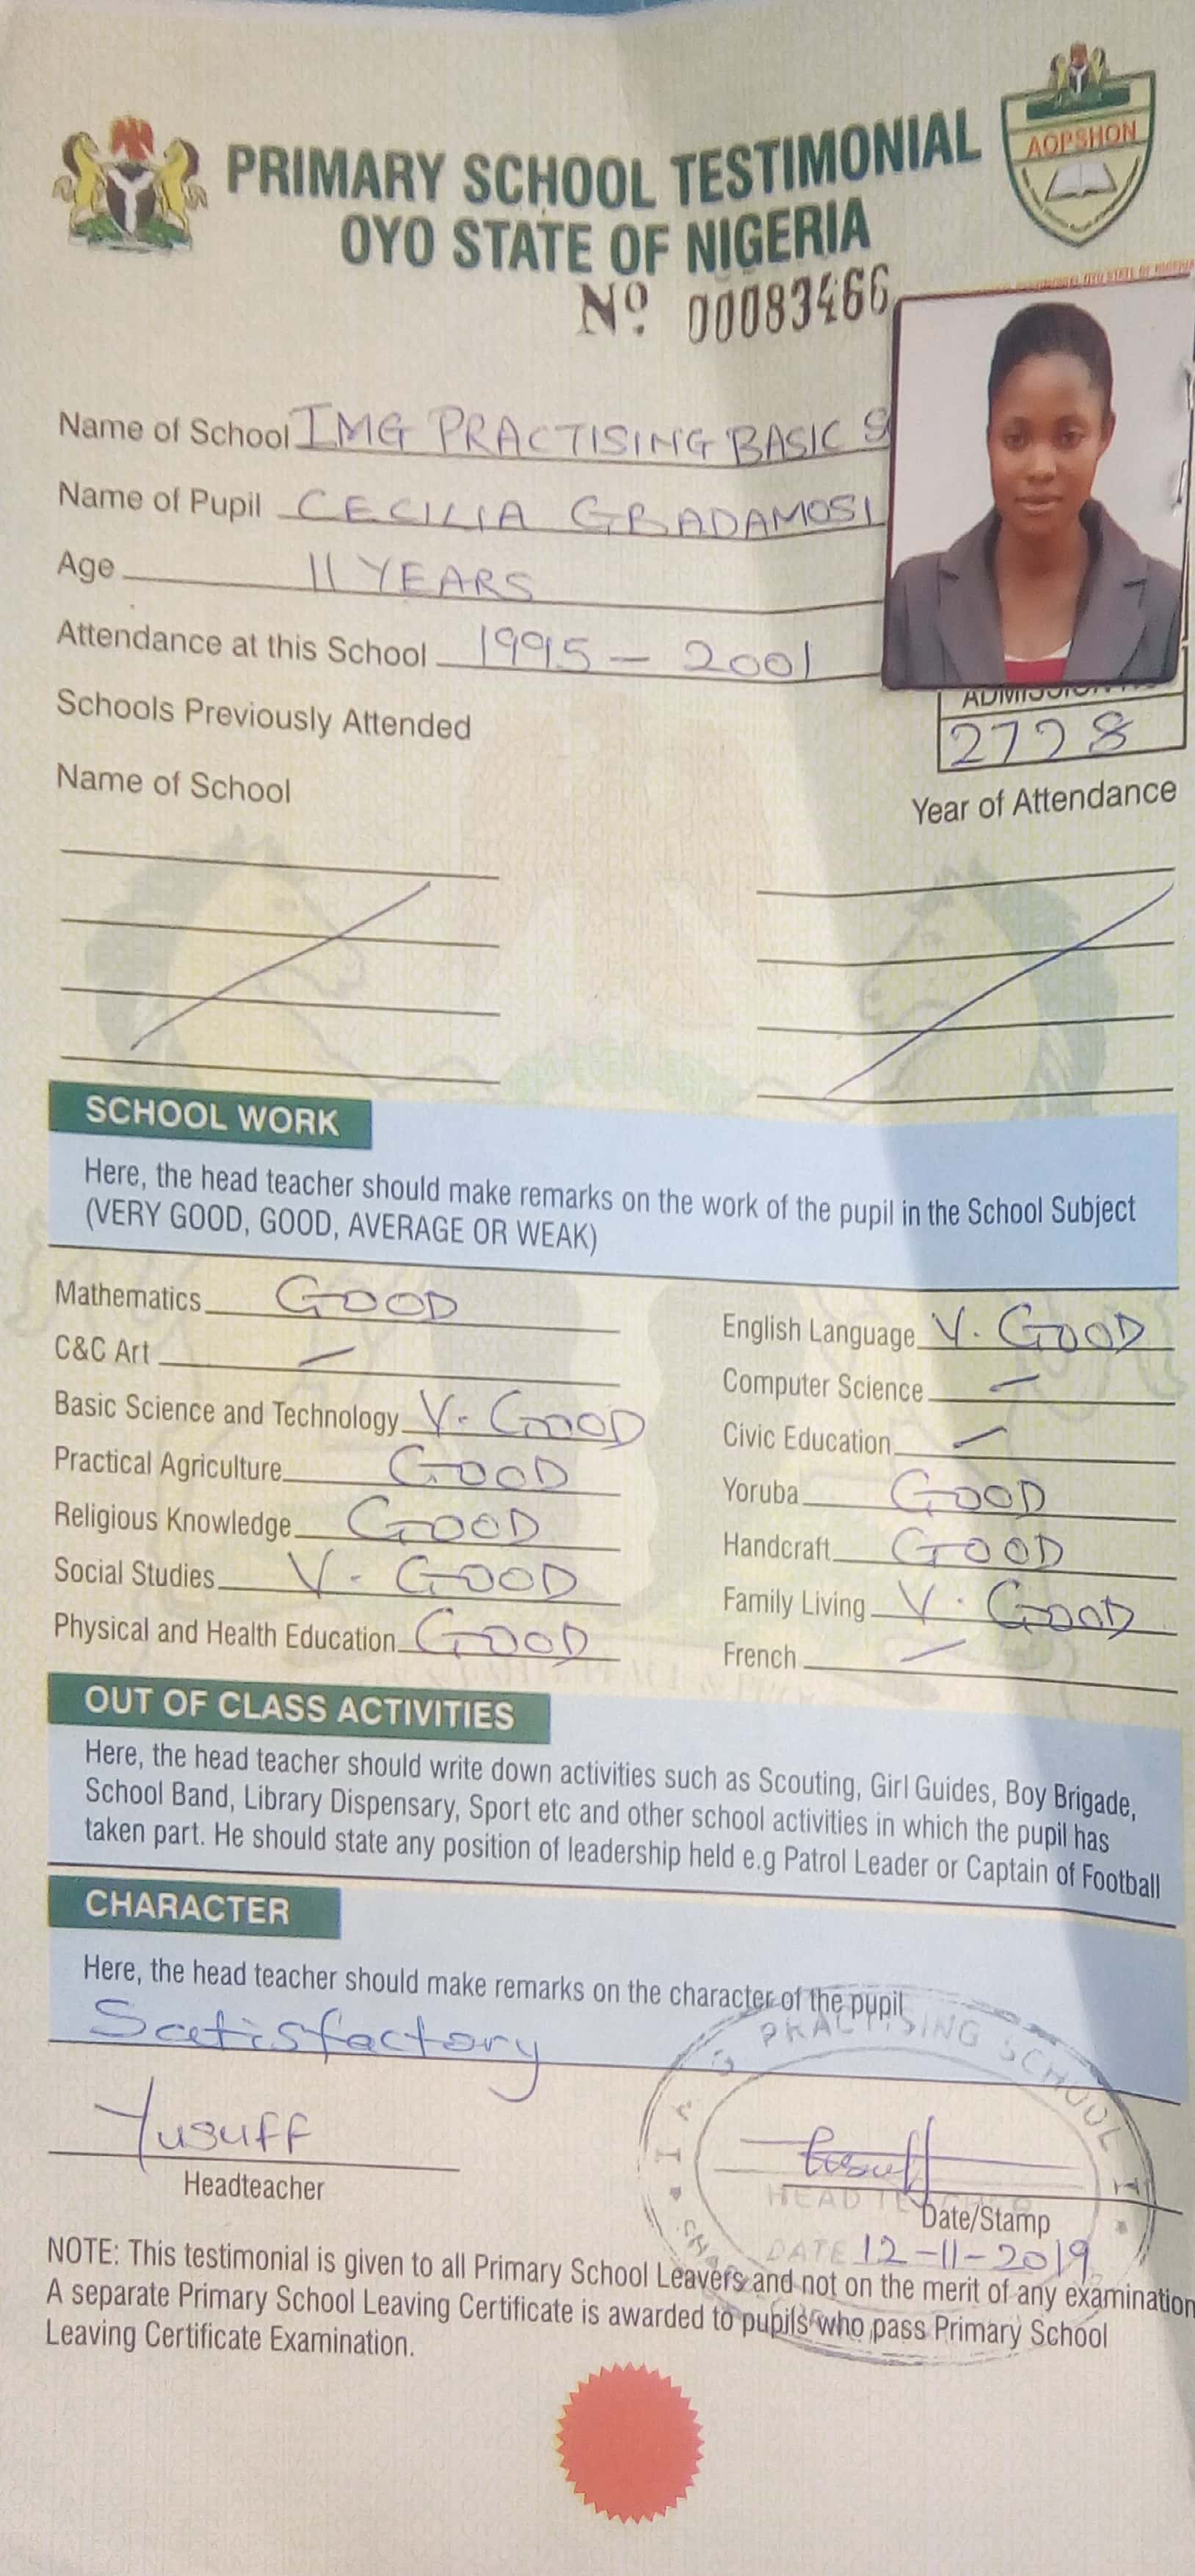 PRIMARY SCHOOL TESTIMONIAL
OYO STATE OF NIGERIA
AOPSHON
Nº 00083466
Name of School IMG PRACTISING BASIC S
Name of Pupil CECILIA GBADAMOSI
Age 11 YEARS
Attendance at this School 1995 – 2001
Schools Previously Attended
2728
Name of School
Year of Attendance
SCHOOL WORK
Here, the head teacher should make remarks on the work of the pupil in the School Subject
(VERY GOOD, GOOD, AVERAGE OR WEAK)
Mathematics GOOD
English Language V. GOOD
C&C Art –
Computer Science –
Basic Science and Technology V. GOOD
Civic Education –
Practical Agriculture GOOD
Yoruba GOOD
Religious Knowledge GOOD
Handcraft GOOD
Social Studies V. GOOD
Family Living V. GOOD
Physical and Health Education GOOD
French –
OUT OF CLASS ACTIVITIES
Here, the head teacher should write down activities such as Scouting, Girl Guides, Boy Brigade,
School Band, Library Dispensary, Sport etc and other school activities in which the pupil has
taken part. He should state any position of leadership held e.g Patrol Leader or Captain of Football
CHARACTER
Here, the head teacher should make remarks on the character of the pupil
Satisfactory
PRACTISING SCHOOL
Yusuff
Headteacher
HEAD TEACHER
Date/Stamp
DATE 12-11-2019
NOTE: This testimonial is given to all Primary School Leavers and not on the merit of any examination
A separate Primary School Leaving Certificate is awarded to pupils who pass Primary School
Leaving Certificate Examination.